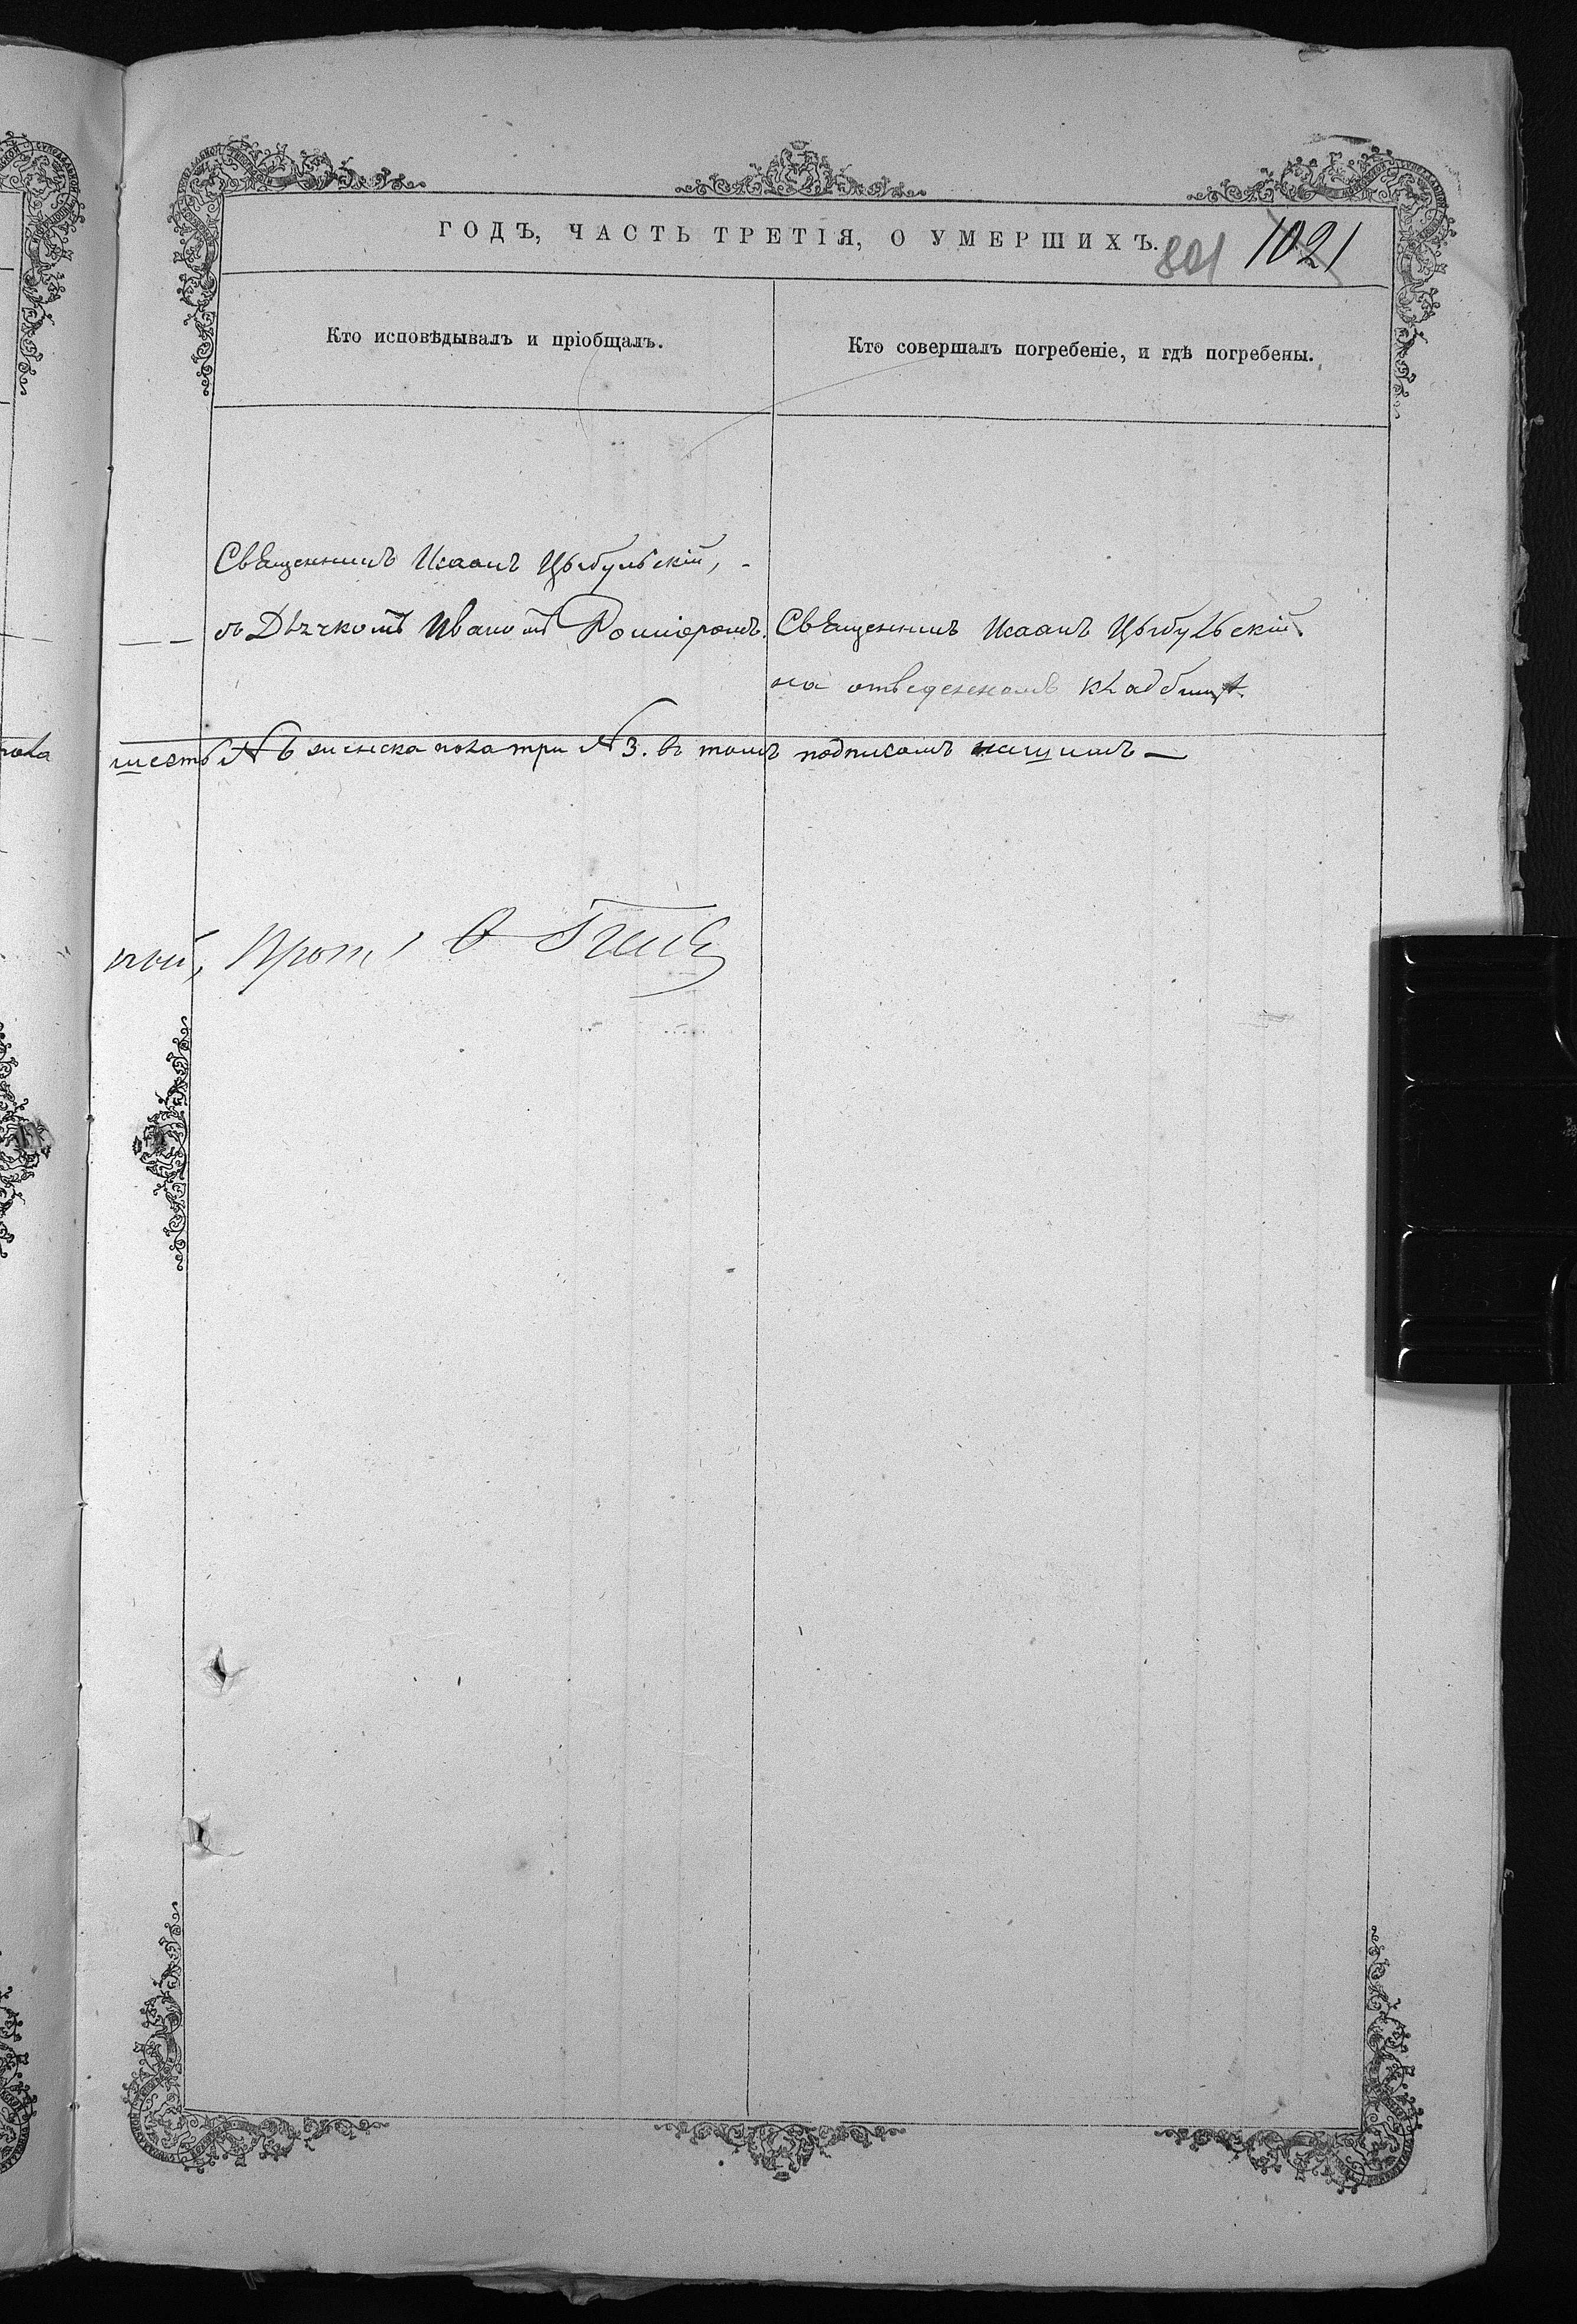 ГОДЪ, ЧАСТЬ ТРЕТІЯ, О УМЕРШИХЪ.
801 1021
Кто исповѣдывалъ и пріобщалъ.
Кто совершалъ погребеніе, и гдѣ погребены.
Священникъ Иоанъ Цыбульскій,
съ Дьячкомъ Иваномъ
Священникъ Иоанъ Цыбульскій
на отведенномъ кладбищѣ
шесть № 6 женска пола три № 3. въ томъ подписомъ
ный, Прот.
пола